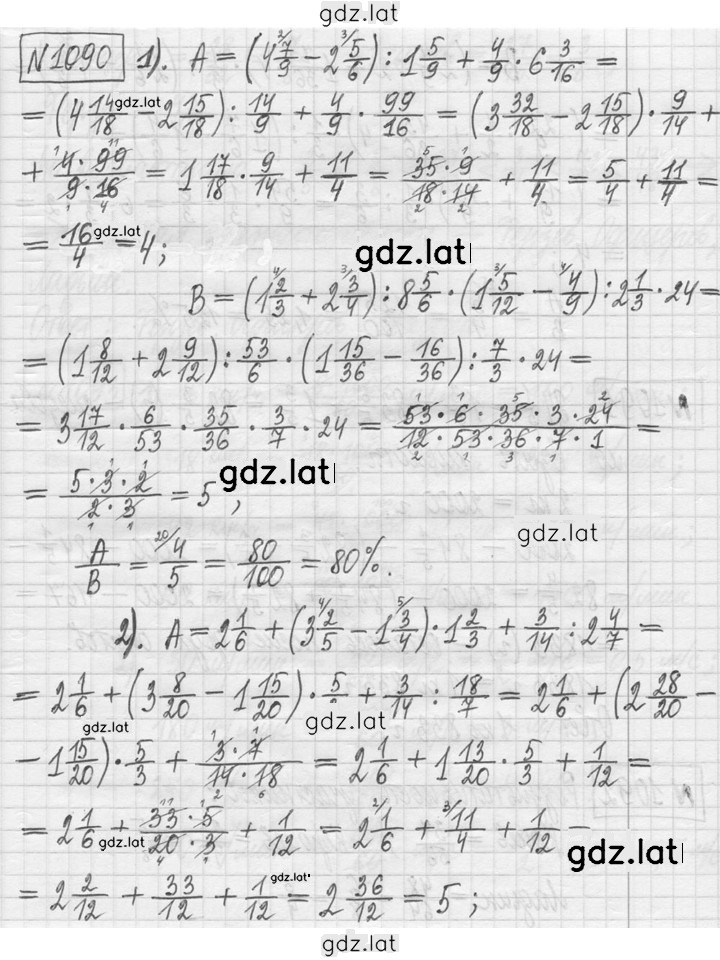 gdz.lat
№1090 1). A = (4 7/9 − 2 5/6) : 1 5/9 + 4/9 · 6 3/16 =
= (4 14/18 − 2 15/18) : 14/9 + 4/9 · 99/16 = (3 32/18 − 2 15/18) · 9/14 +
gdz.lat
+ 4·99/9·16 = 1 17/18 · 9/14 + 11/4 = 35·9/18·14 + 11/4 = 5/4 + 11/4 =
= 16/4 = 4;
gdz.lat
gdz.lat
B = (1 2/3 + 2 3/4) : 8 5/6 · (1 5/12 − 4/9) : 2 1/3 · 24 =
= (1 8/12 + 2 9/12) : 53/6 · (1 15/36 − 16/36) : 7/3 · 24 =
= 3 17/12 · 6/53 · 35/36 · 3/7 · 24 = 53·6·35·3·24/12·53·36·7·1 =
= 5·3·2/2·3 = 5;
gdz.lat
gdz.lat
A/B = 4/5 = 80/100 = 80%.
2). A = 2 1/6 + (3 2/5 − 1 3/4) · 1 2/3 + 3/14 : 2 4/7 =
= 2 1/6 + (3 8/20 − 1 15/20) · 5 + 3/14 : 18/7 = 2 1/6 + (2 28/20 −
gdz.lat
gdz.lat
− 1 15/20) · 5/3 + 3·7/14·18 = 2 1/6 + 1 13/20 · 5/3 + 1/12 =
= 2 1/6 + 33·5/20·3 + 1/12 = 2 1/6 + 11/4 + 1/12 =
gdz.lat
= 2 2/12 + 33/12 + 1/12 = 2 36/12 = 5;
gdz.lat
gdz.lat